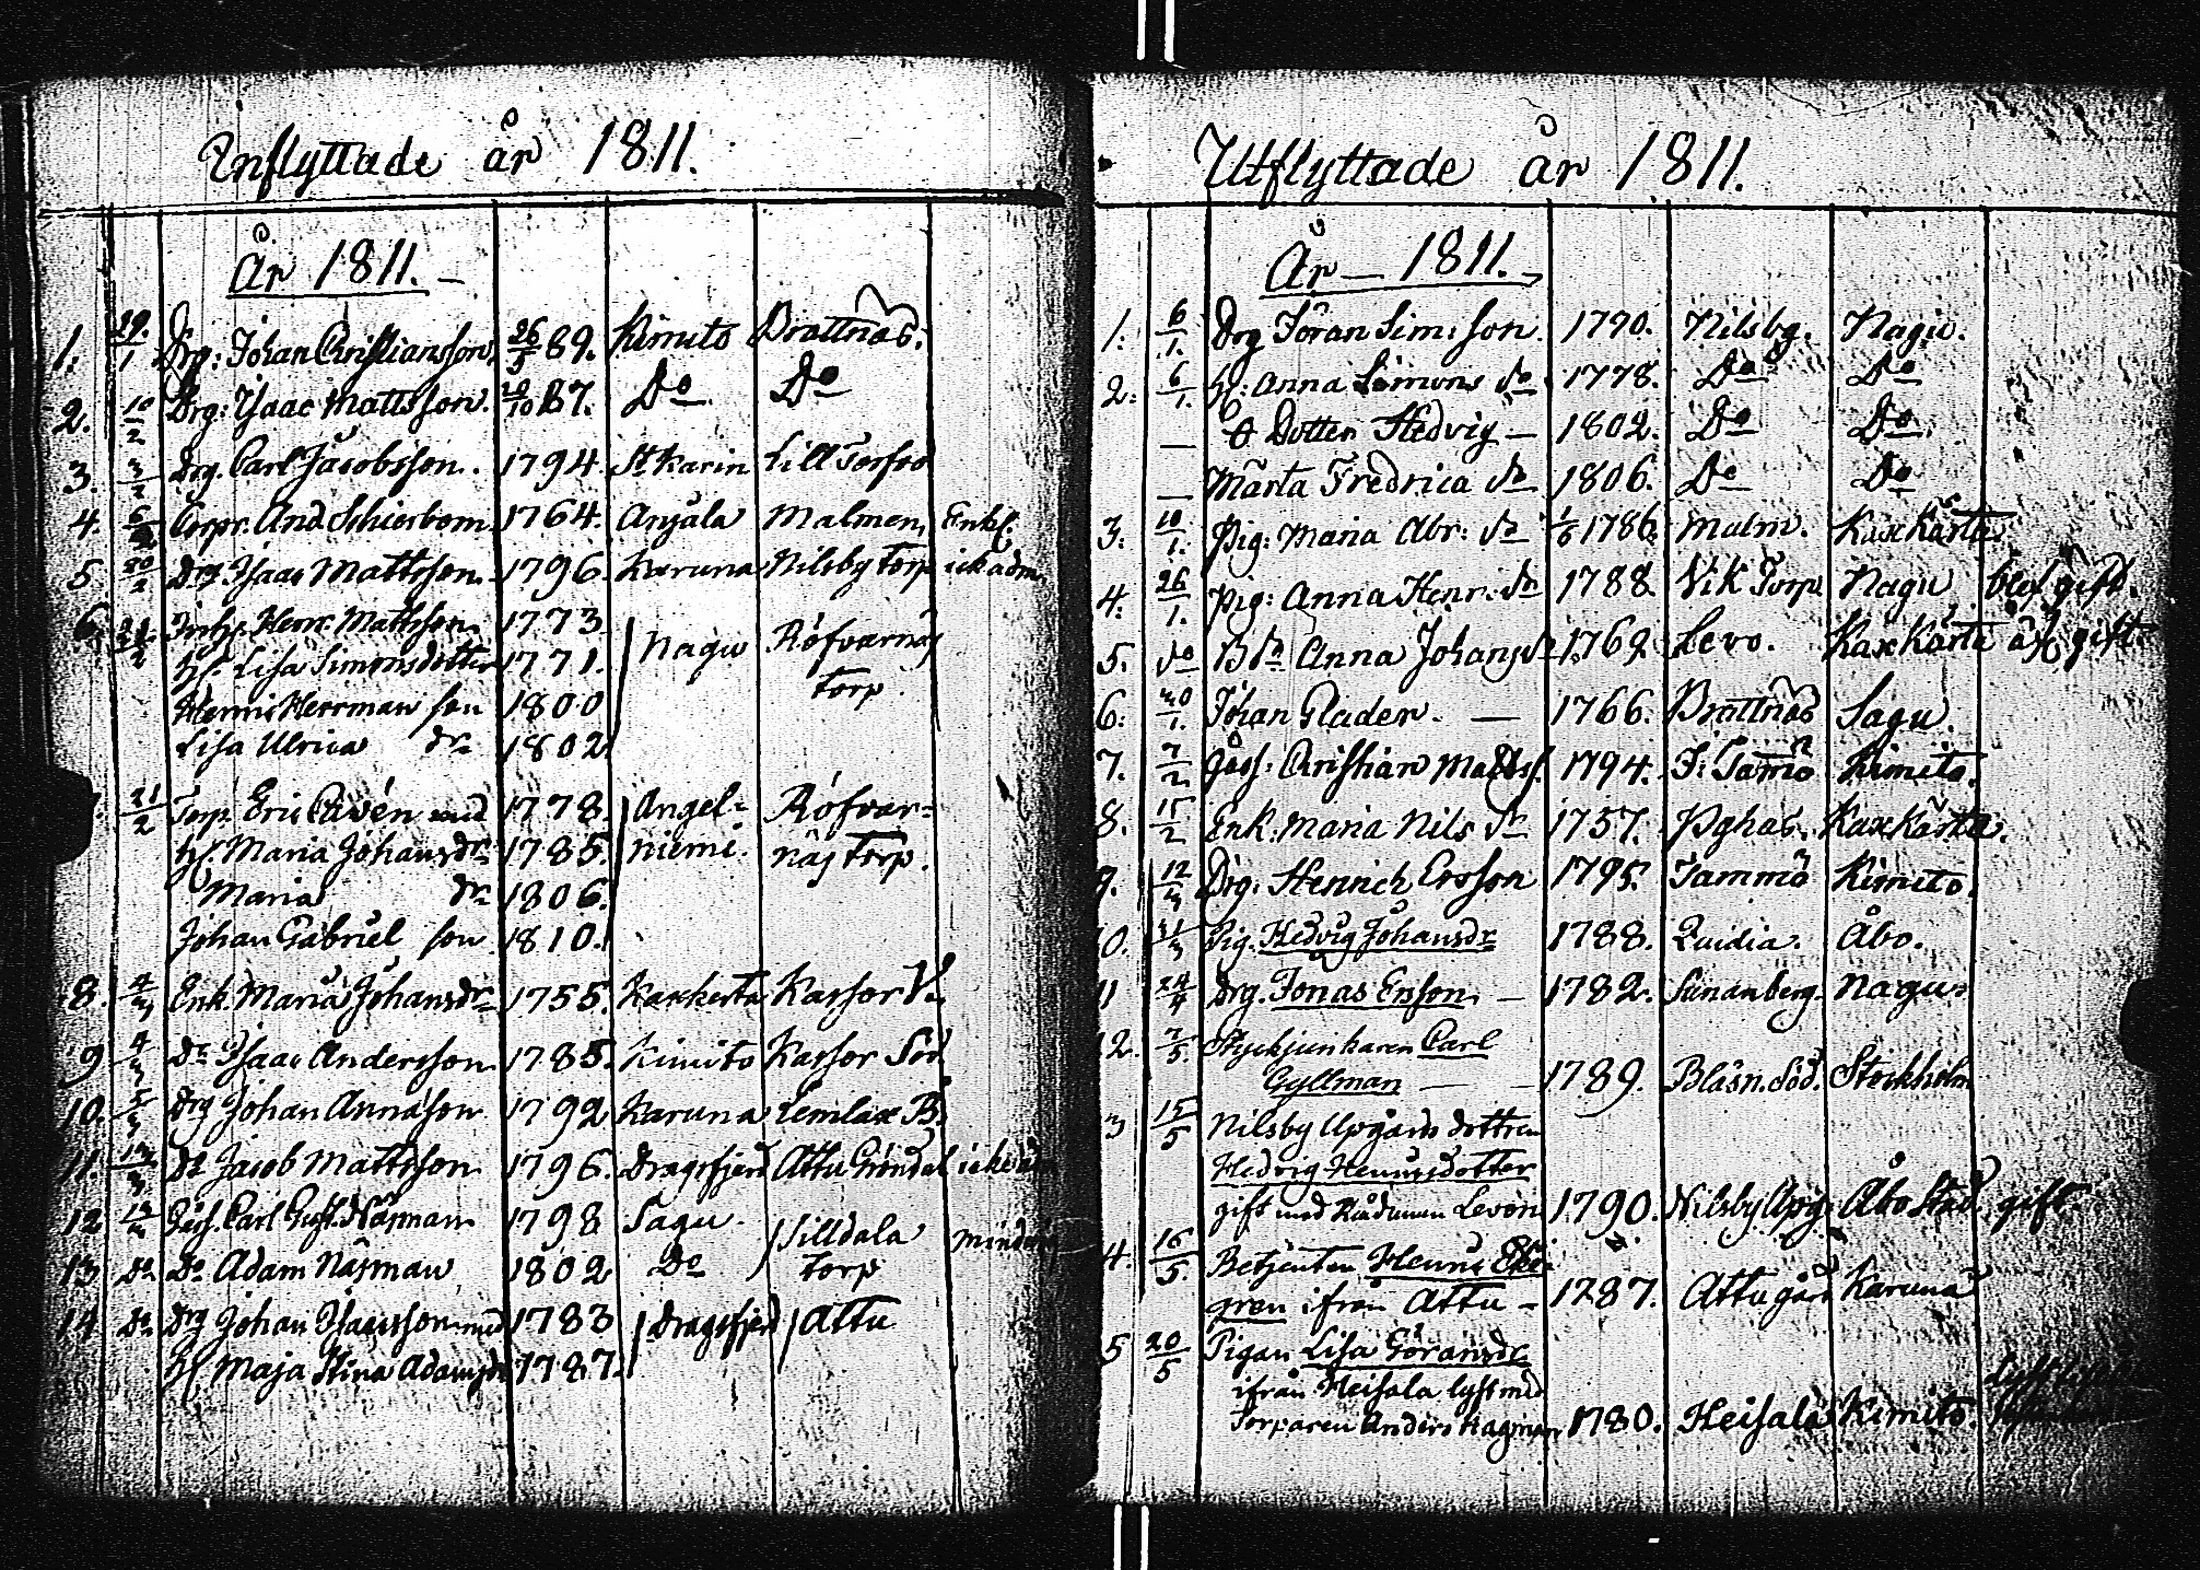 Inflyttade år 1811.
År 1811. –
1. 29/1 Drg: Johan Christiansson 26/5 89. Kimito Brattnäs.
2. 10/2 Drg: Isaac Mattsson. 87. Do Do
3. 3/2 Drg. Carl Jacobsson. 1794. St Karin Lill
4. 6/2 Corpr. And Schierbom 1764. Anjala Malmen Enkl.
5. 20/2 Drg Isaac Mattsson 1796. Karuna Nilsby torp ick adm
6. Henr. Mattsson 1773 Nagu Röfvarnäs
h. Lisa Simonsdotter 1771. torp
Henric Herrman son 1800
Lisa Ulrica dr 1802
21/2 Torp. Eric Cavén med 1778. Angel= Röfvar=
h. Maria Johansdr 1785. niemi. näs torp.
Maria dr 1806.
Johan Gabriel son 1810.
8. 4/3 Enk. Maria Johansdr 1755. Kaxkerta Kassor V.
9 4/3 Dr Isaac Andersson 1785. Kimito Kassor Söd
10. 5/3 Drg Johan Annasson 1792 Karuna Lemlax B.
11. Dr Jacob Mattsson 1796. Dragsfjerd Attu Gröndal icke ad
12 Gåss. Carl Gust. Näsman 1798 Sagu. Silldala minder
13 Do Do Adam Näsman 1802 Do torp
14 Do Drg Johan Isacsson med 1783 Dragsfjerd Attu
h Maja Stina Adamsdr 1787.
Utflyttade år 1811.
År – 1811. –
1. 6/1. Drg Jöran Simsson. 1790. Nilsby. Nagu.
2. 6/1. h: Anna Simons dr 1778. Do Do
– Dotter Hedvig – 1802. Do Do
– Märta Fredrica dr 1806. Do Do
3. 10/1. Pig: Maria Abr: dr 1786. Malm. Kaxkärta.
4. 26/1. Pig: Anna Henr. dr 1788 Vik Torp Nagu blef gift.
5. do Anna Johans dr 1769. Levo. Kaxkärta gift
6: 30/1. Johan Glader. – 1766. Brattnäs Sagu.
7. 7/2 Gåss: Christian Matss. 1794. Kimito.
8. 15/2 Enk. Maria Nils dr 1757. Pghas. Kaxkärta.
9. 12/3 Drg: Henrich Ersson 1795. Tammo Kimito.
10. 31/3 Pig. Hedvig Johansdr 1788. Quidia. Åbo.
11 24/4 Drg. Jonas Ersson. – 1782. Sunanberg. Nagu.
12. 7/5. Styckjunkaren Carl
Gyllman – – 1789. Bläsn. Söd. Stockholm
3 15/5 Nilsby Upgårds dottren
Hedvig Henricsdotter
gift med Rådman Levon 1790. Nilsby Upg. Åbo Stad. gift.
4. 16/5. Betjenten Henric Ek=
gren ifrån Attu – 1787. Attu gård Karuna
5 20/5 Pigan Lisa Göransdr
ifrån Heisala lyst med
Torparen Anders Hagman 1780. Heisala Kimito.